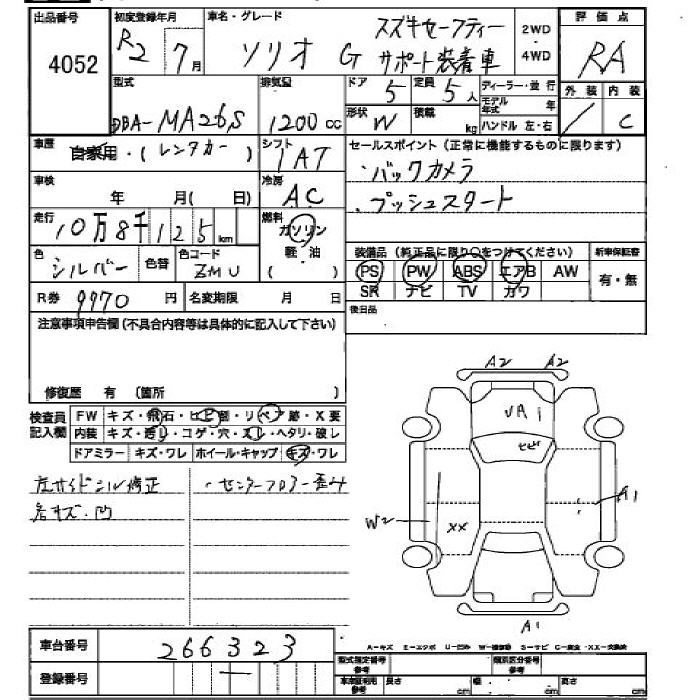 出品番号 4052
初度登録年月 R2 7月
車名・グレード ソリオ G スズキセーフティーサポート装着車
2WD・4WD
評価点 RA
外装 / 内装 C
型式 DBA-MA26S
排気量 1200cc
ドア 5
定員 5人
ディーラー・並行
形状 W
積載 kg
モデル年式 年
ハンドル 左・右
車歴 自家用・(レンタカー)
シフト IAT
セールスポイント(正常に機能するものに限ります)
・バックカメラ
・プッシュスタート
車検 年 月(日)
冷房 AC
走行 10万8千125km
燃料 ガソリン 軽・油 ( )
色 シルバー 色替
色コード ZMU
装備品(純正品に限り○をつけてください)
新車保証書
PS PW ABS エアB AW
有・無
SR ナビ TV カワ
R券 9970円
名変期限 月 日
後日品
注意事項申告欄(不具合内容等は具体的に記入して下さい)
修復歴 有(箇所 )
検査員記入欄
FW キズ・飛石・ヒビ割・リペア跡・X要
内装 キズ・汚れ・コゲ・穴・スレ・ヘタリ・破レ
ドアミラー キズ・ワレ ホイール・キャップ キズ・ワレ
左サイドシル修正
・センターフロアー歪み
各キズ・凹
A2 A2
UA1
ヒビ
W2
XX
A1
A1
車台番号 266323
登録番号 —
A−キズ E−エクボ U−凹み W−補修跡 S−サビ C−腐食 ・XX−交換済
型式指定番号 参考
類別区分番号 参考
車庫証明用 参考 長さ cm 幅 cm 高さ cm